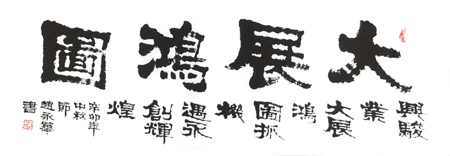 大展鴻圖
興駿
業
大展
鴻
圖抓
機
遇永
創輝
煌
辛卯年
中秋
師
趙永華
書